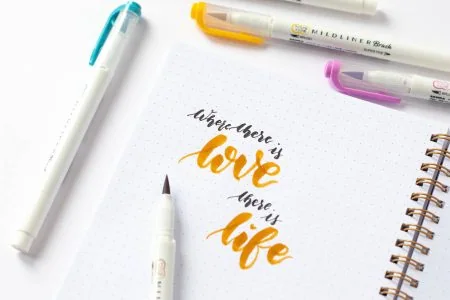 MILDLINER Brush
where there is
love
there is
life